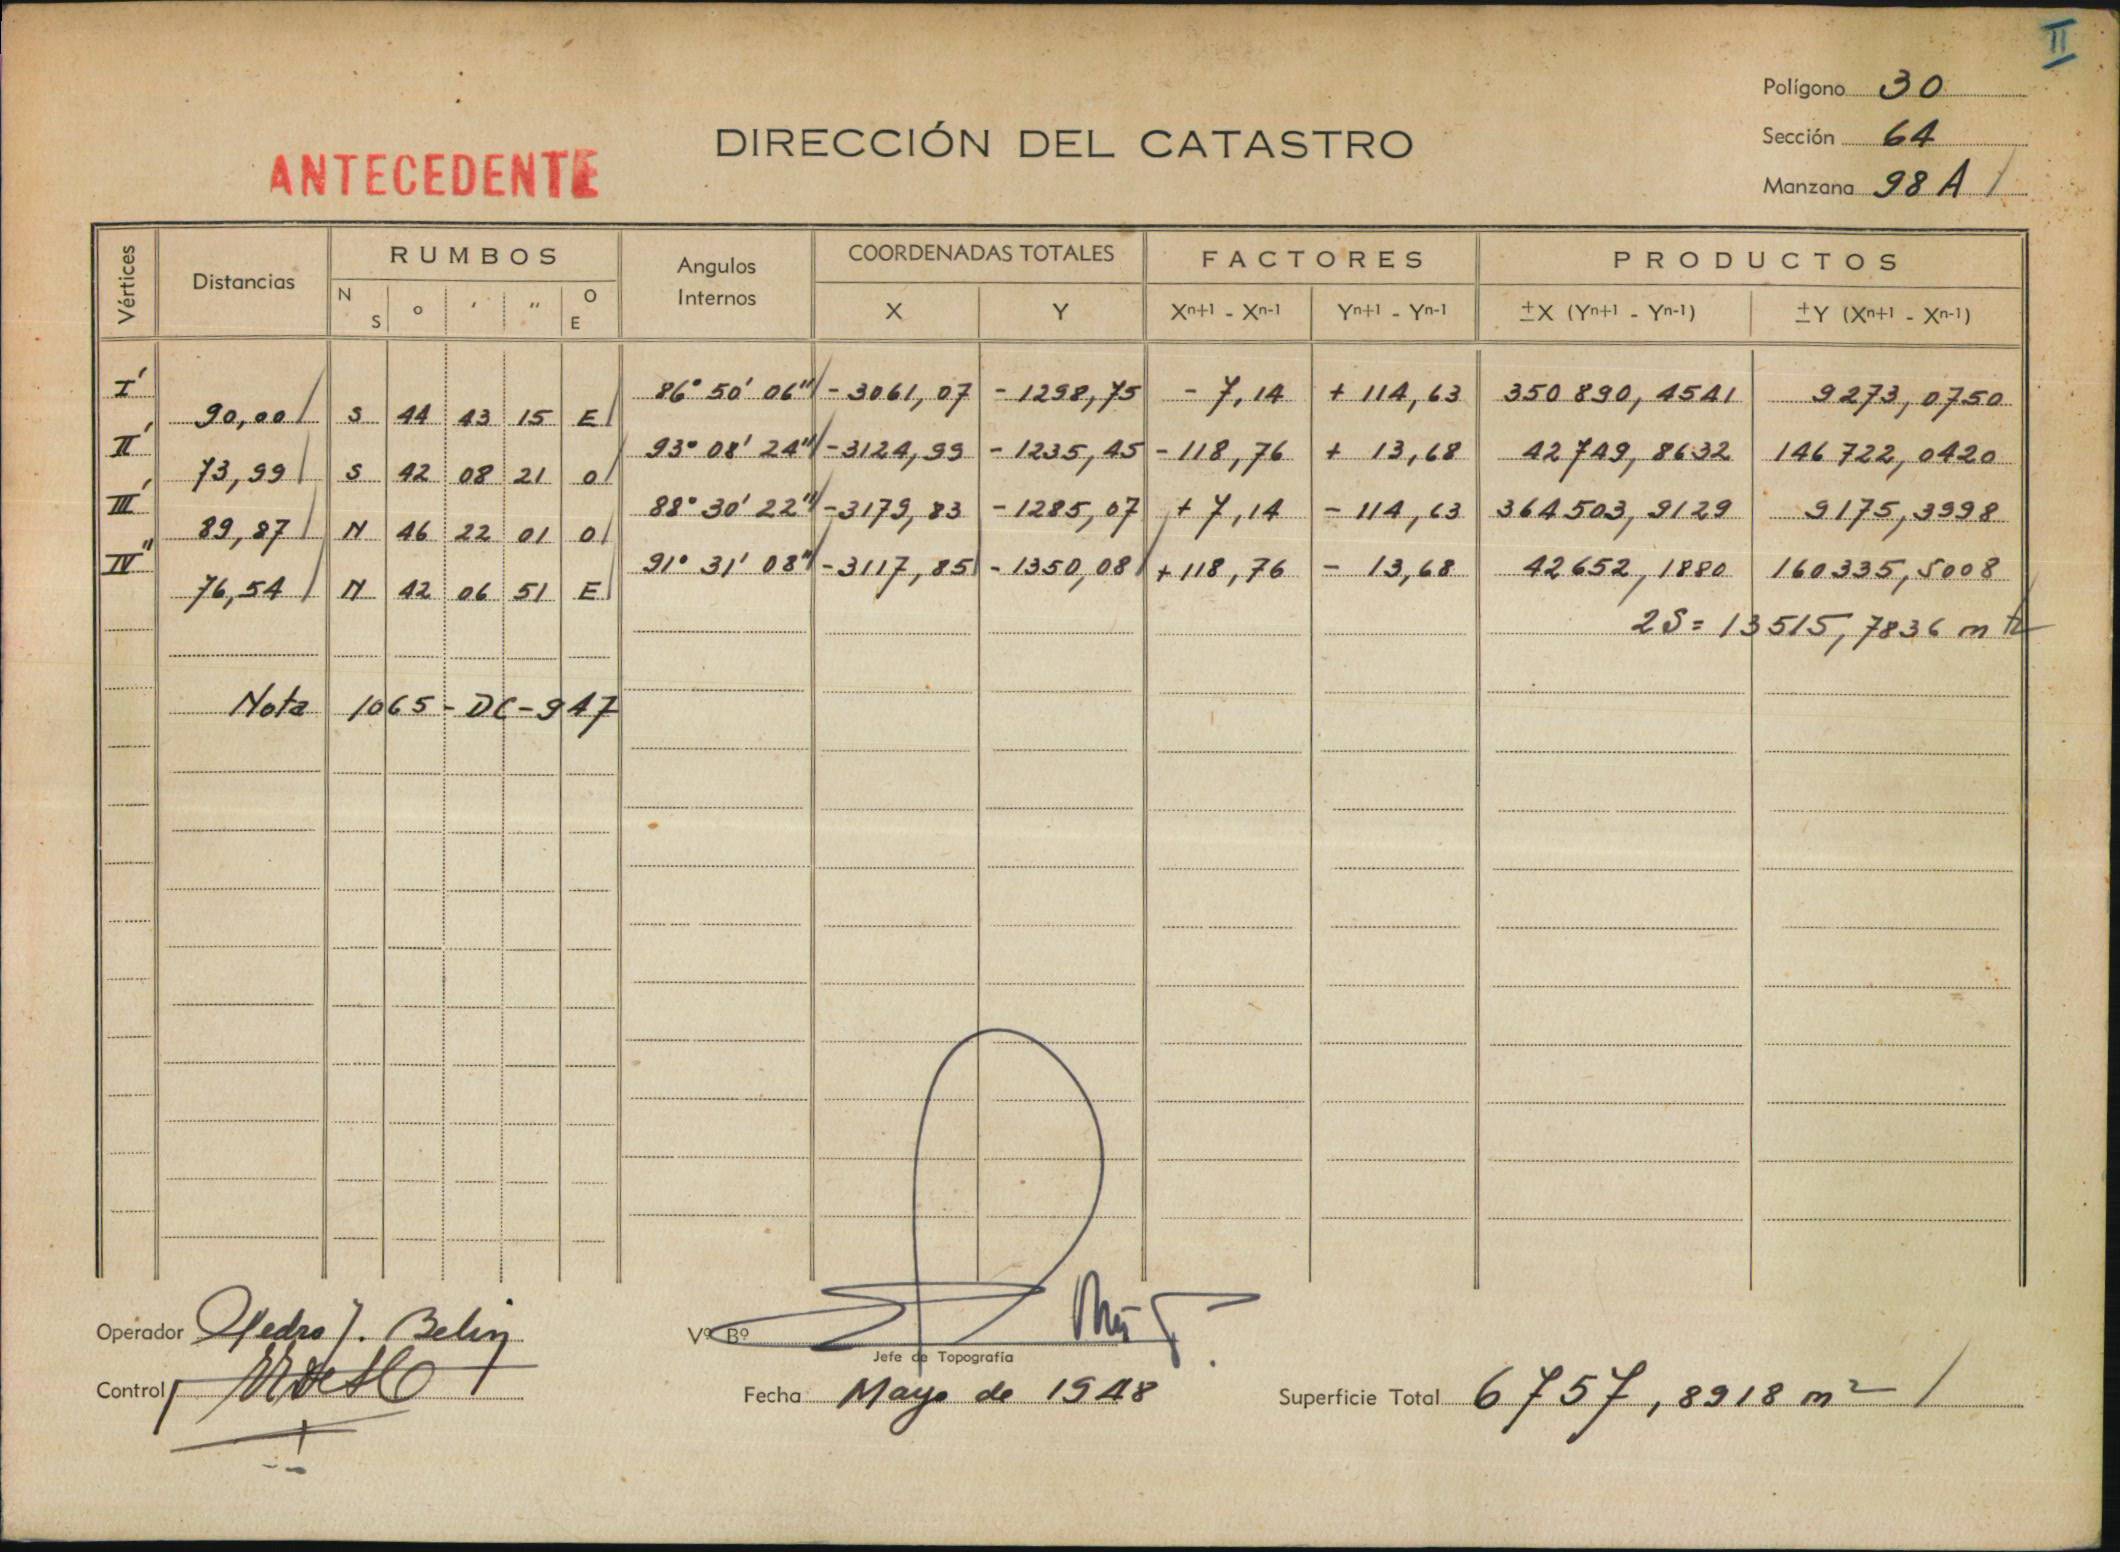 II
Polígono 30
Sección 64
Manzana 98 A
DIRECCIÓN DEL CATASTRO
ANTECEDENTE
Vértices Distancias RUMBOS Angulos Internos COORDENADAS TOTALES FACTORES PRODUCTOS
N S ° ′ ″ O E X Y Xn+1 - Xn-1 Yn+1 - Yn-1 ±X (Yn+1 - Yn-1) ±Y (Xn+1 - Xn-1)
I' 86° 50' 06" -3061,07 -1298,75 -7,14 +114,63 350890,4541 9273,0750
90,00 S 44 43 15 E
II' 93° 08' 24" -3124,99 -1235,45 -118,76 +13,68 42749,8632 146722,0420
73,99 S 42 08 21 O
III' 88° 30' 22" -3179,83 -1285,07 +7,14 -114,63 364503,9129 9175,3998
89,87 N 46 22 01 O
IV" 91° 31' 08" -3117,85 -1350,08 +118,76 -13,68 42652,1880 160335,5008
76,54 N 42 06 51 E
2S = 13515,7836 m2
Nota 1065-DC-947
Operador Pedro J. Belin
Vº Bº
Jefe de Topografía
Control
Fecha Mayo de 1948
Superficie Total 6757,8918 m2